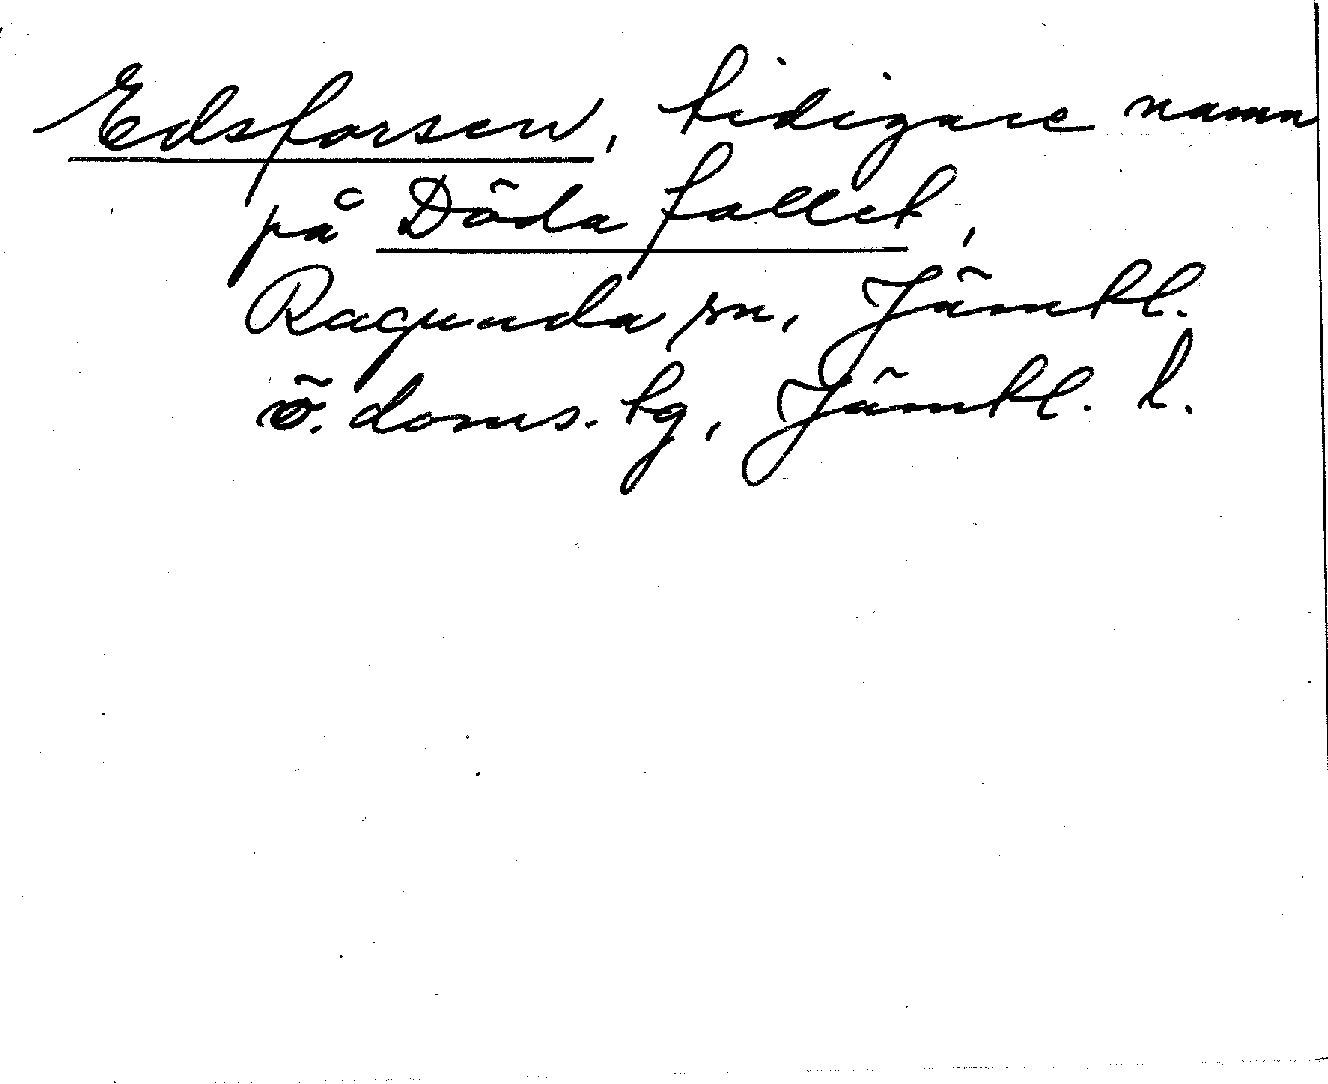 Edsforsen, tidigare namn
på Döda fallet,
Ragunda sn, Jämtl.
ö. doms. tg, Jämtl. l.